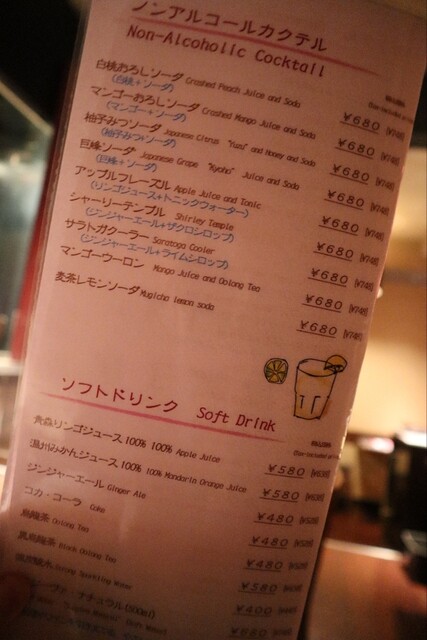 ノンアルコールカクテル
Non-Alcoholic Cocktail
白桃おろしソーダ Crashed Peach Juice and Soda ¥680 (¥748)
(白桃+ソーダ)
マンゴーおろしソーダ Crashed Mango Juice and Soda ¥680 (¥748)
(マンゴー+ソーダ)
柚子みつソーダ Japanese Citrus "Yuzu" and Honey and Soda ¥680 (¥748)
(柚子みつ+ソーダ)
巨峰ソーダ Japanese Grape "Kyoho" Juice and Soda ¥680 (¥748)
(巨峰+ソーダ)
アップルフレーズル Apple Juice and Tonic ¥680 (¥748)
(リンゴジュース+トニックウォーター)
シャーリーテンプル Shirley Temple ¥680 (¥748)
(ジンジャーエール+ザクロシロップ)
サラトガクーラー Saratoga Cooler ¥680 (¥748)
(ジンジャーエール+ライムシロップ)
マンゴーウーロン Mango Juice and Oolong Tea ¥680 (¥748)
麦茶レモンソーダ Mugicha lemon soda ¥680 (¥748)
ソフトドリンク Soft Drink
青森リンゴジュース 100% 100% Apple Juice ¥580
温州みかんジュース 100% 100% Mandarin Orange Juice ¥580
ジンジャーエール Ginger Ale ¥480
コカ・コーラ Coke ¥480
烏龍茶 Oolong Tea ¥480
黒烏龍茶 Black Oolong Tea ¥580
¥400
ナチュラル ¥680